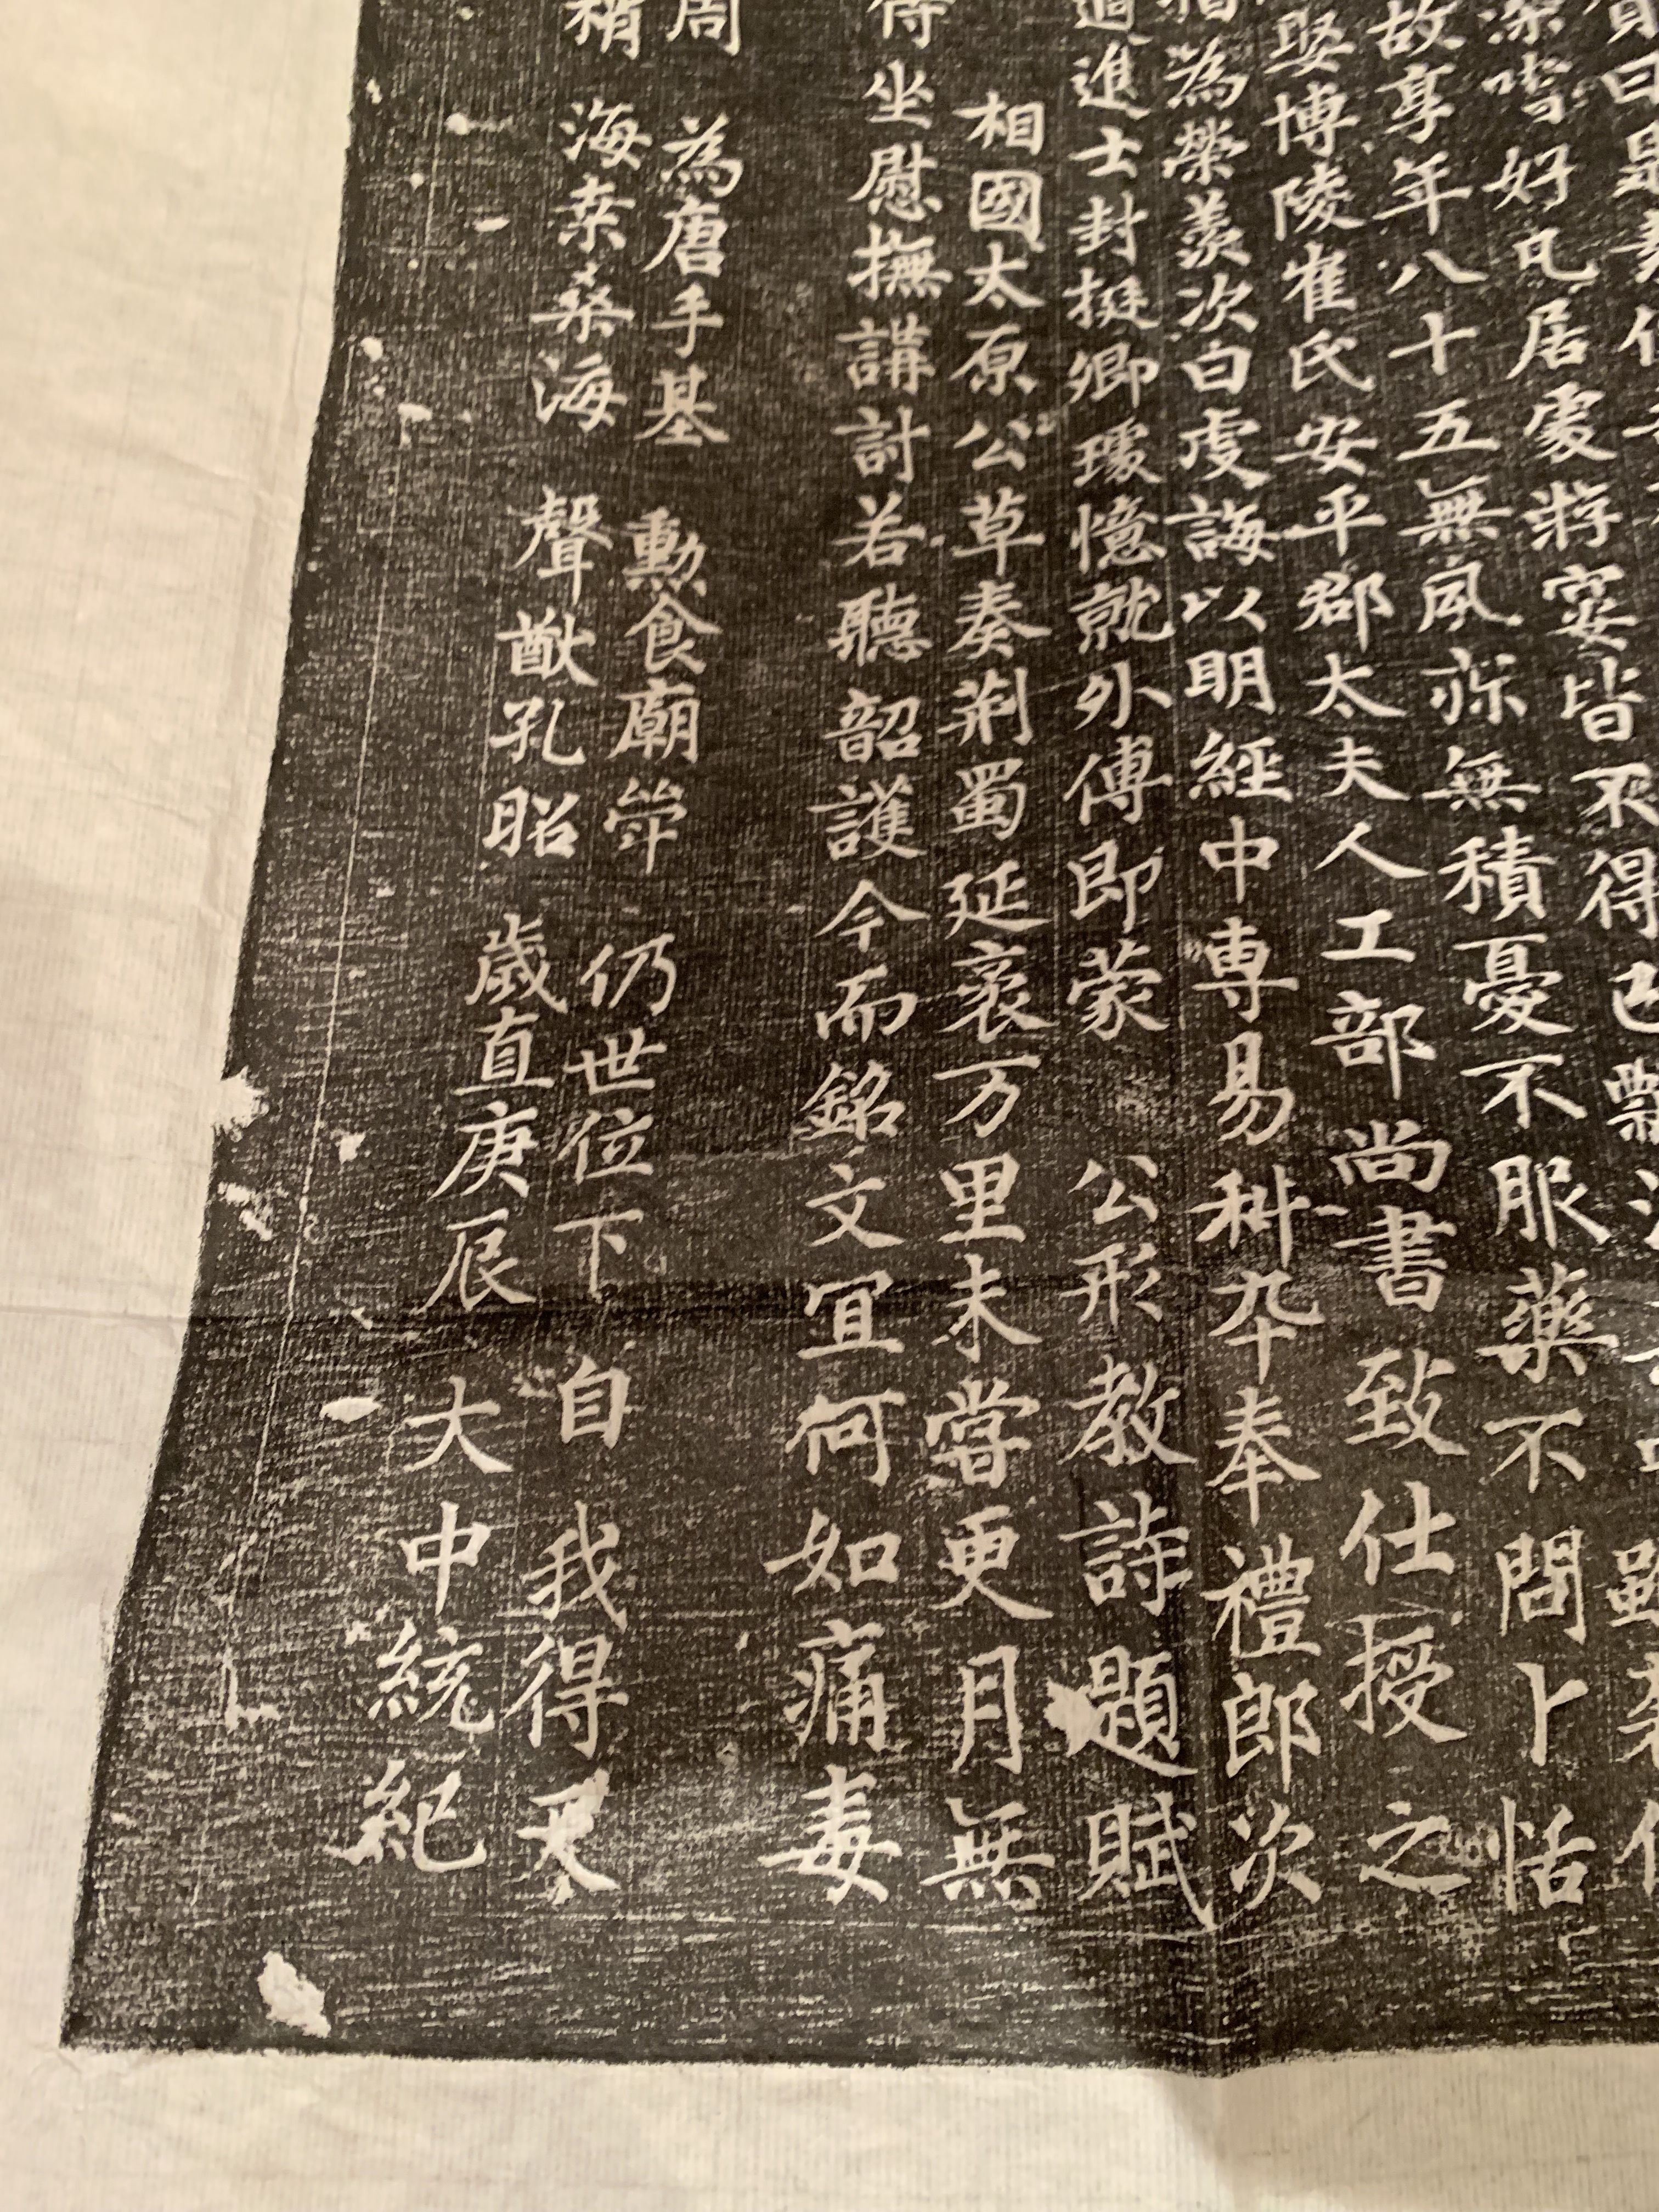 不得已
深嗜好凡居處游宴皆不得
故享年八十五無夙痾無積憂不服藥不問卜恬
娶博陵崔氏安平郡太夫人工部尚書致仕授之
為榮羨次白虔誨以明經中専易科卒奉禮郎次
進士封挺卿瓊憶就外傅即蒙 公形教詩題賦
相國太原公草奏荊蜀延袤万里未嘗更月無
坐慰撫講討若聽韶護今而銘文冝何如痛毒
周 為唐手基 勲食廟 仍世位下 自 我得
海桒桑海 聲猷孔昭 歲直庚辰 大中統紀